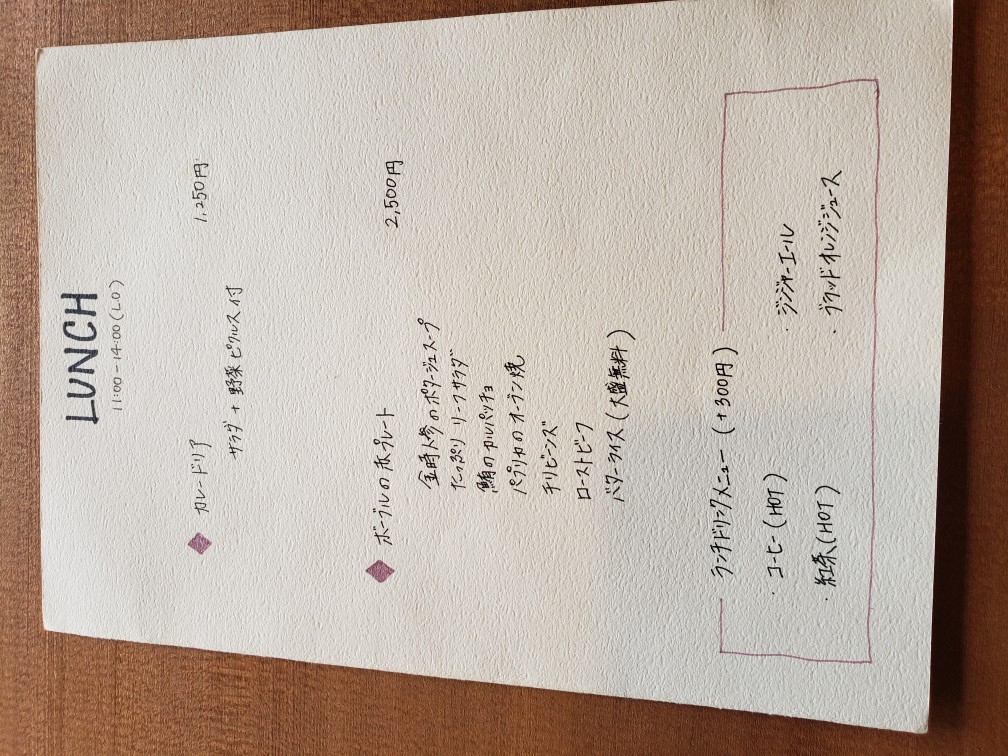 LUNCH
11:00-14:00(L.O)
カレードリア 1,250円
サラダ+野菜ピクルス付
ボーブルの赤プレート 2,500円
金時人参のポタージュスープ
たっぷりリーフサラダ
鮪のカルパッチョ
パプリカのオーブン焼
チリビーンズ
ローストビーフ
バターライス(大盛無料)
ランチドリンクメニュー(+300円)
・コーヒー(HOT) ・ジンジャーエール
・紅茶(HOT) ・ブラッドオレンジジュース